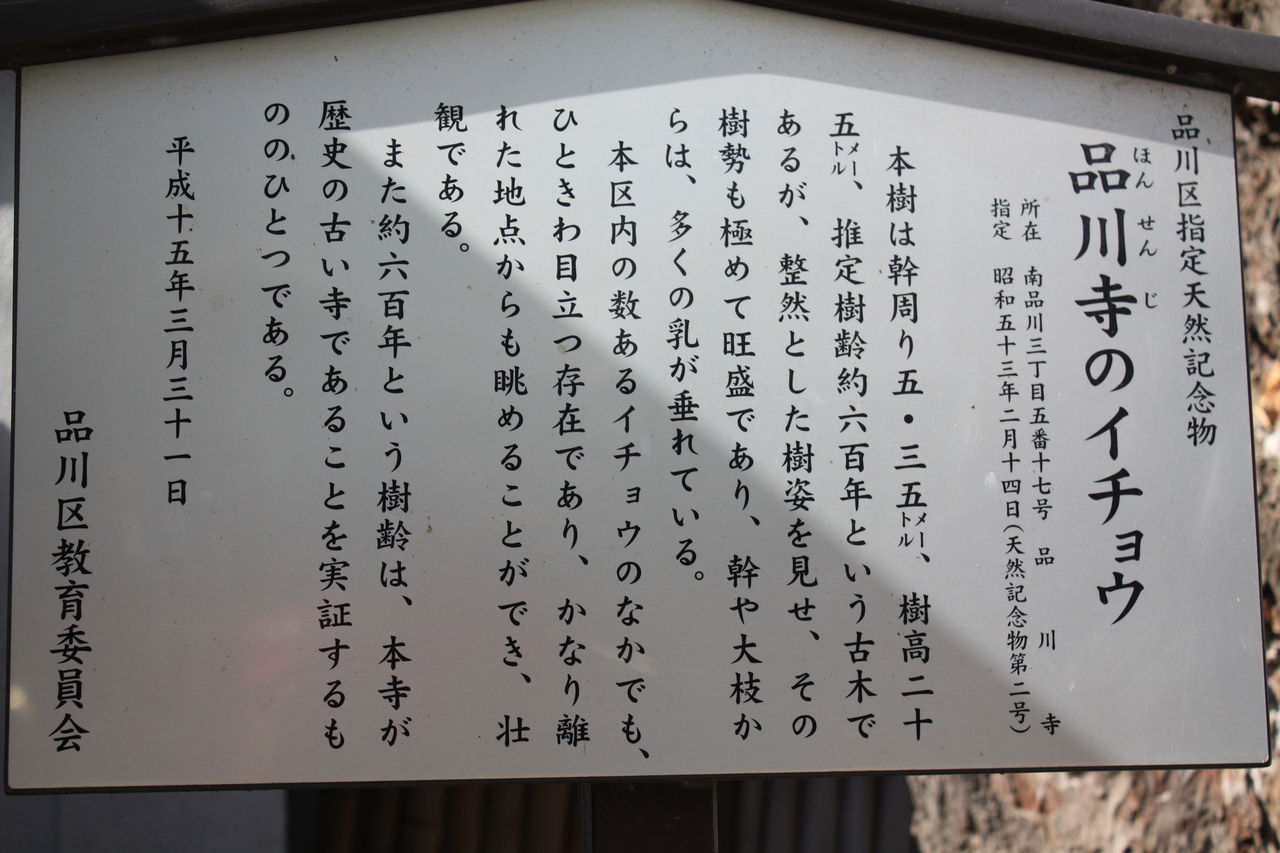 品川区指定天然記念物
品川寺のイチョウ
ほんせんじ
所在　南品川三丁目五番十七号　品川寺
指定　昭和五十三年二月十四日（天然記念物第二号）
本樹は幹周り五・三五メートル、樹高二十
五メートル、推定樹齢約六百年という古木で
あるが、整然とした樹姿を見せ、その
樹勢も極めて旺盛であり、幹や大枝か
らは、多くの乳が垂れている。
本区内の数あるイチョウのなかでも、
ひときわ目立つ存在であり、かなり離
れた地点からも眺めることができ、壮
観である。
また約六百年という樹齢は、本寺が
歴史の古い寺であることを実証するも
ののひとつである。
平成十五年三月三十一日
品川区教育委員会